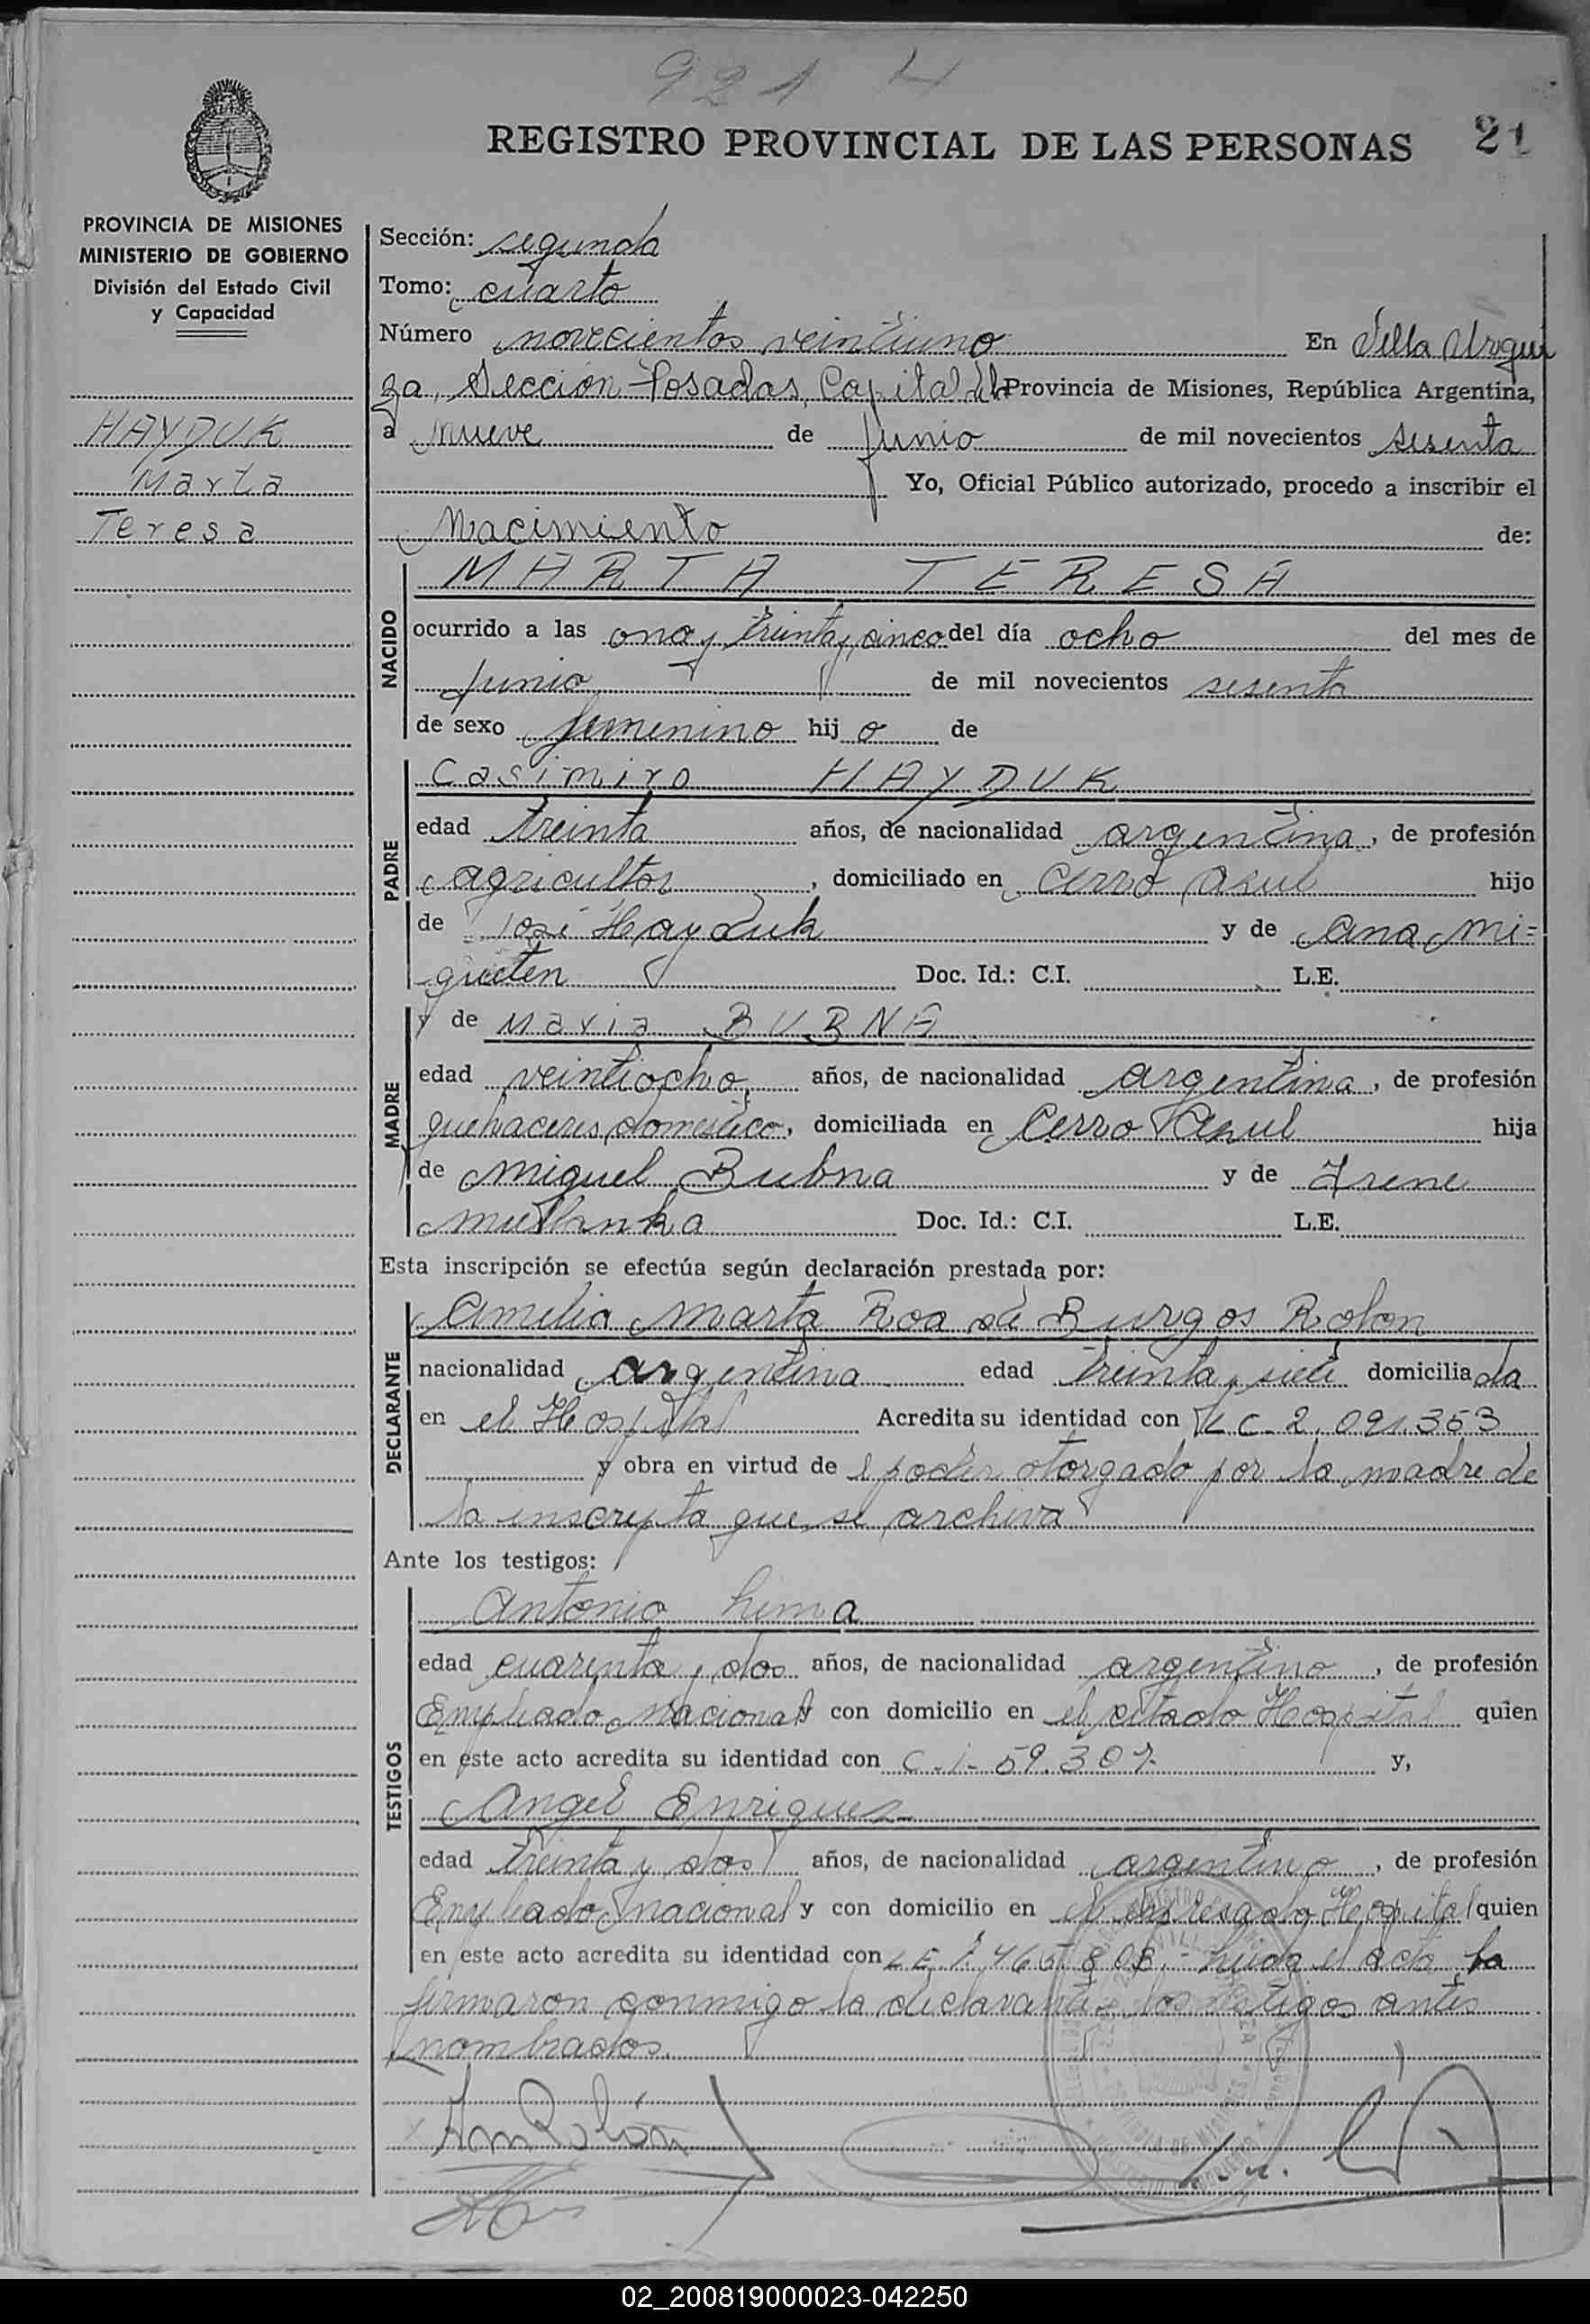 921
REGISTRO PROVINCIAL DE LAS PERSONAS 21
PROVINCIA DE MISIONES
MINISTERIO DE GOBIERNO
División del Estado Civil
y Capacidad
HAYDUK
Marta
Teresa
Sección: segunda
Tomo: cuarto
Número novecientos veintiuno En Villa Urqui
za, Sección Posadas, Capital de la Provincia de Misiones, República Argentina,
a nueve de junio de mil novecientos sesenta
Yo, Oficial Público autorizado, procedo a inscribir el
Nacimiento de:
NACIDO
MARTA TERESA
ocurrido a las una y treinta y cinco del día ocho del mes de
junio de mil novecientos sesenta
de sexo femenino hij o de
PADRE
Casimiro HAYDUK
edad treinta años, de nacionalidad argentina, de profesión
agricultor, domiciliado en Cerro Azul hijo
de José Hayduk y de Ana Mi=
Doc. Id.: C.I. L.E.
MADRE
y de Maria BUBNA
edad veintiocho, años, de nacionalidad argentina, de profesión
quehaceres domestico, domiciliada en Cerro Azul hija
de Miguel Bubna y de Irene
Doc. Id.: C.I. L.E.
Esta inscripción se efectúa según declaración prestada por:
DECLARANTE
Amelia Marta Roa de Burgos Rolon
nacionalidad argentina edad treinta y siete domiciliada
en el Hospital Acredita su identidad con L C - 2.091.353
y obra en virtud de l poder otorgado por la madre de
la inscripta que se archiva
Ante los testigos:
TESTIGOS
Antonio Lima
edad cuarenta y dos años, de nacionalidad argentino, de profesión
Empleado Nacional y con domicilio en el citado Hospital quien
en este acto acredita su identidad con C.I. 59.307- y,
Angel Enriquez
edad treinta y dos años, de nacionalidad argentino, de profesión
Empleado nacional y con domicilio en el expresado Hospital quien
en este acto acredita su identidad con L E 7.465.808.- Leida el acta la
firmaron conmigo la declarante y los testigos antes
nombrados.
02_200819000023-042250